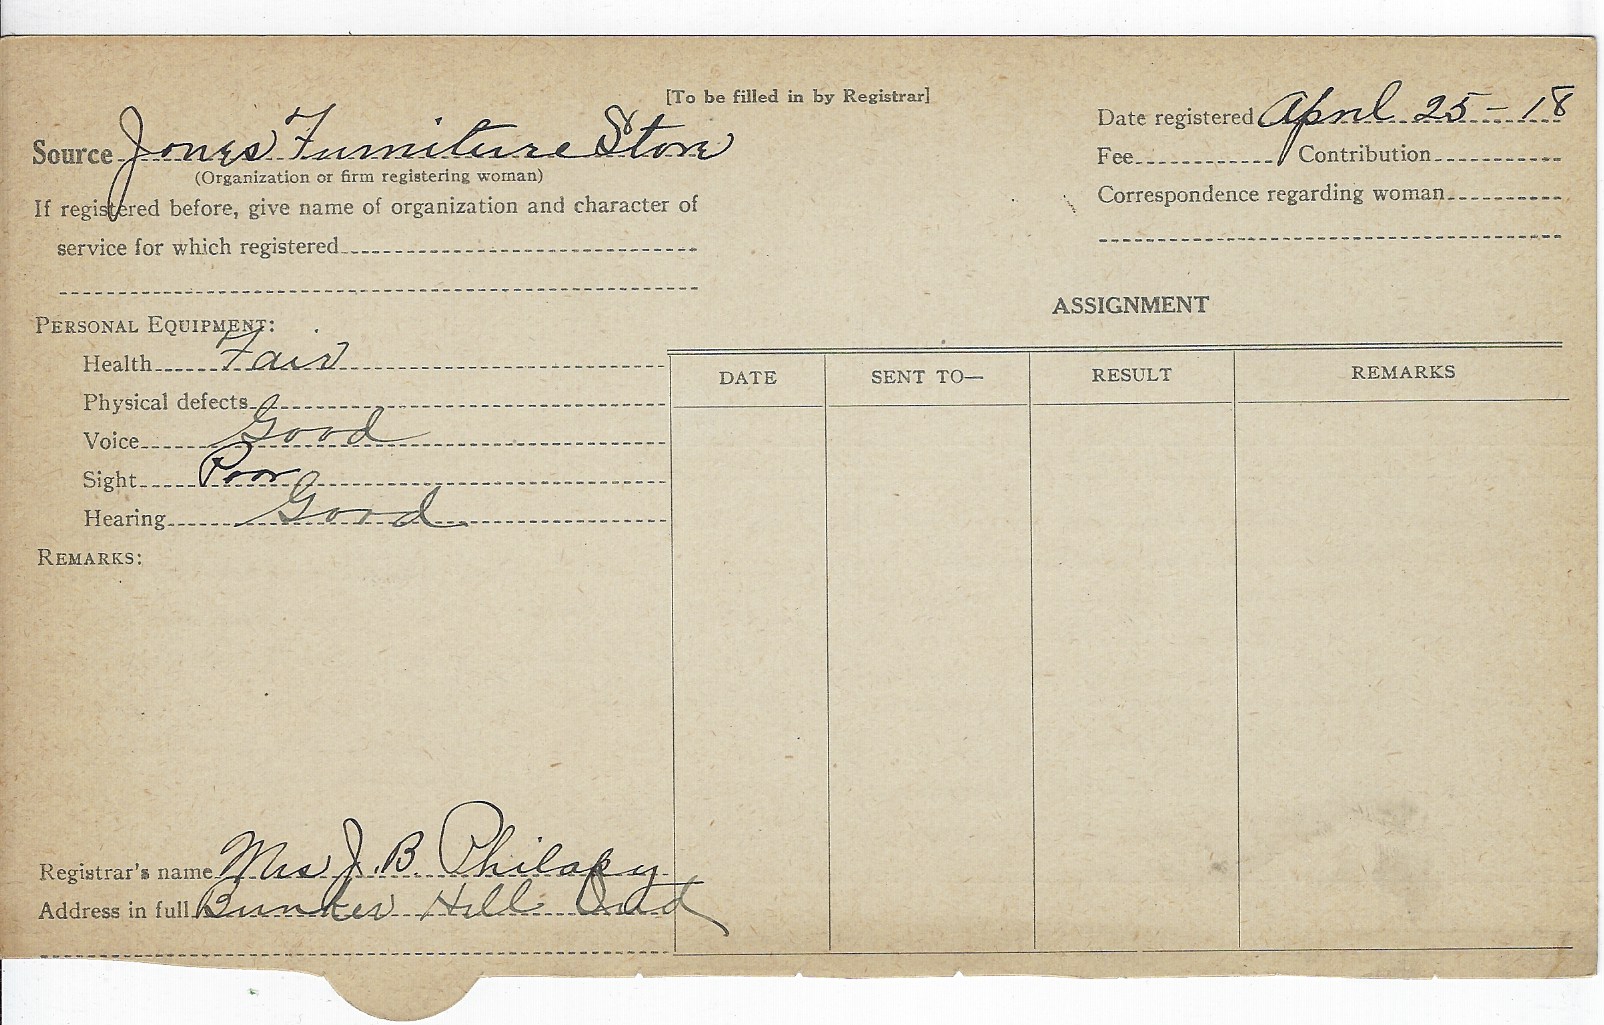 [To be filled in by Registrar]
Source Jones Furniture Store
(Organization or firm registering woman)
If registered before, give name of organization and character of
service for which registered
Date registered April 25-18
Fee Contribution
Correspondence regarding woman
PERSONAL EQUIPMENT:
Health Fair
Physical defects
Voice Good
Sight Poor
Hearing Good
REMARKS:
ASSIGNMENT
DATE SENT TO— RESULT REMARKS
Registrar's name Mrs J. B. Philapy
Address in full Bunker Hill Ind